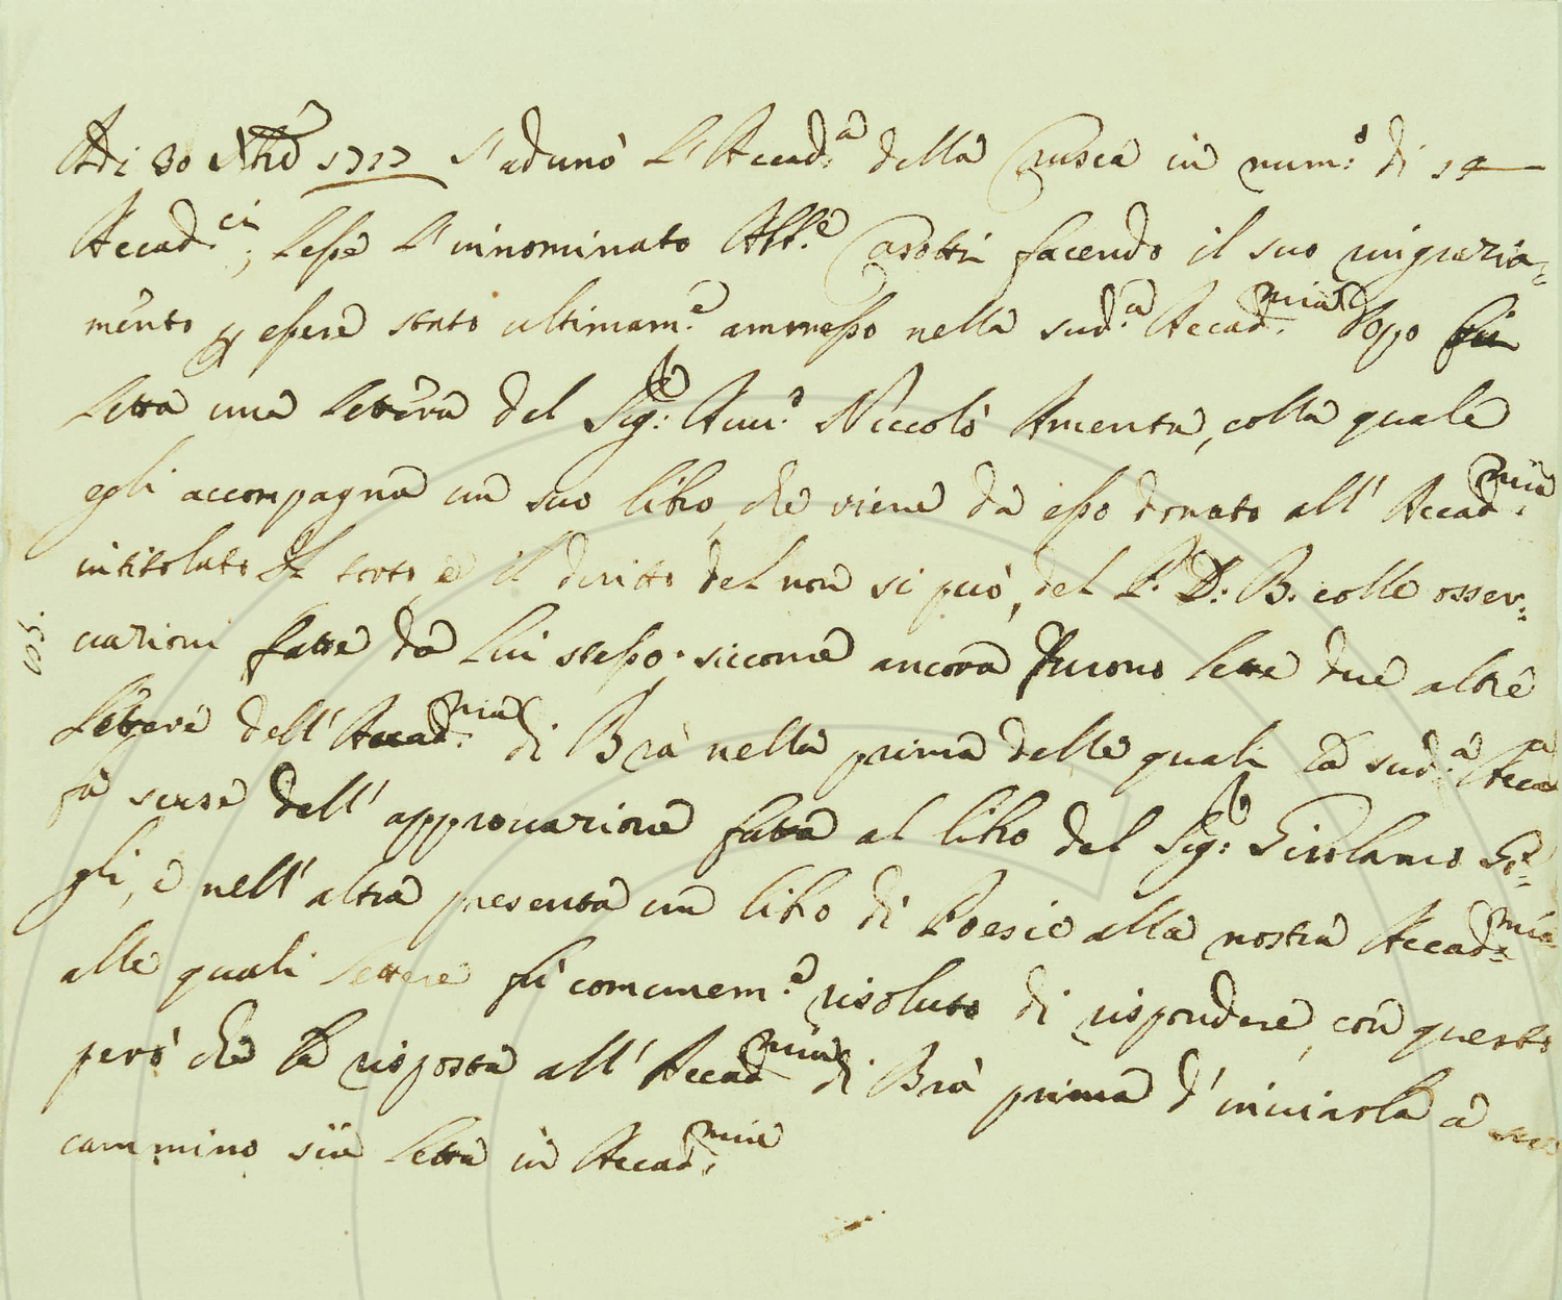 Adi 30 Xbre 1717 S'adunò L'Accad.a della Crusca in num.o di 14
Accad.ci; Lesse L'innominato Abb.e Casotti facendo il suo ringrazia=
mento p essere stato ultimam.e ammesso nella sud.a Accad.mia Dopo fu
Letta una Lettera del Sig.re Auu.o Niccolò Amenta, colla quale
egli accompagna un suo libro, che viene da esso donato all' Accad.mia
intitolato Il torto, e il diritto del non si può, del P. D. B. colle osser=
uazioni fatte da Lui stesso. siccome ancora furono lette due altre
Lettere dell' Accad.mia di Brà nella prima delle quali la sud.a Acca
fa scuse dell' approuazione fatta al libro del Sig.re Girolamo Gi=
gli, e nell' altra presenta un libro di Poesie alla nostra Accad.mia
alle quali lettere fù comunem.e risoluto di rispondere, con questo
però che la risposta all' Accad.mia di Brà prima d'inuiarla a suo
cammino sia letta in Accad.mia